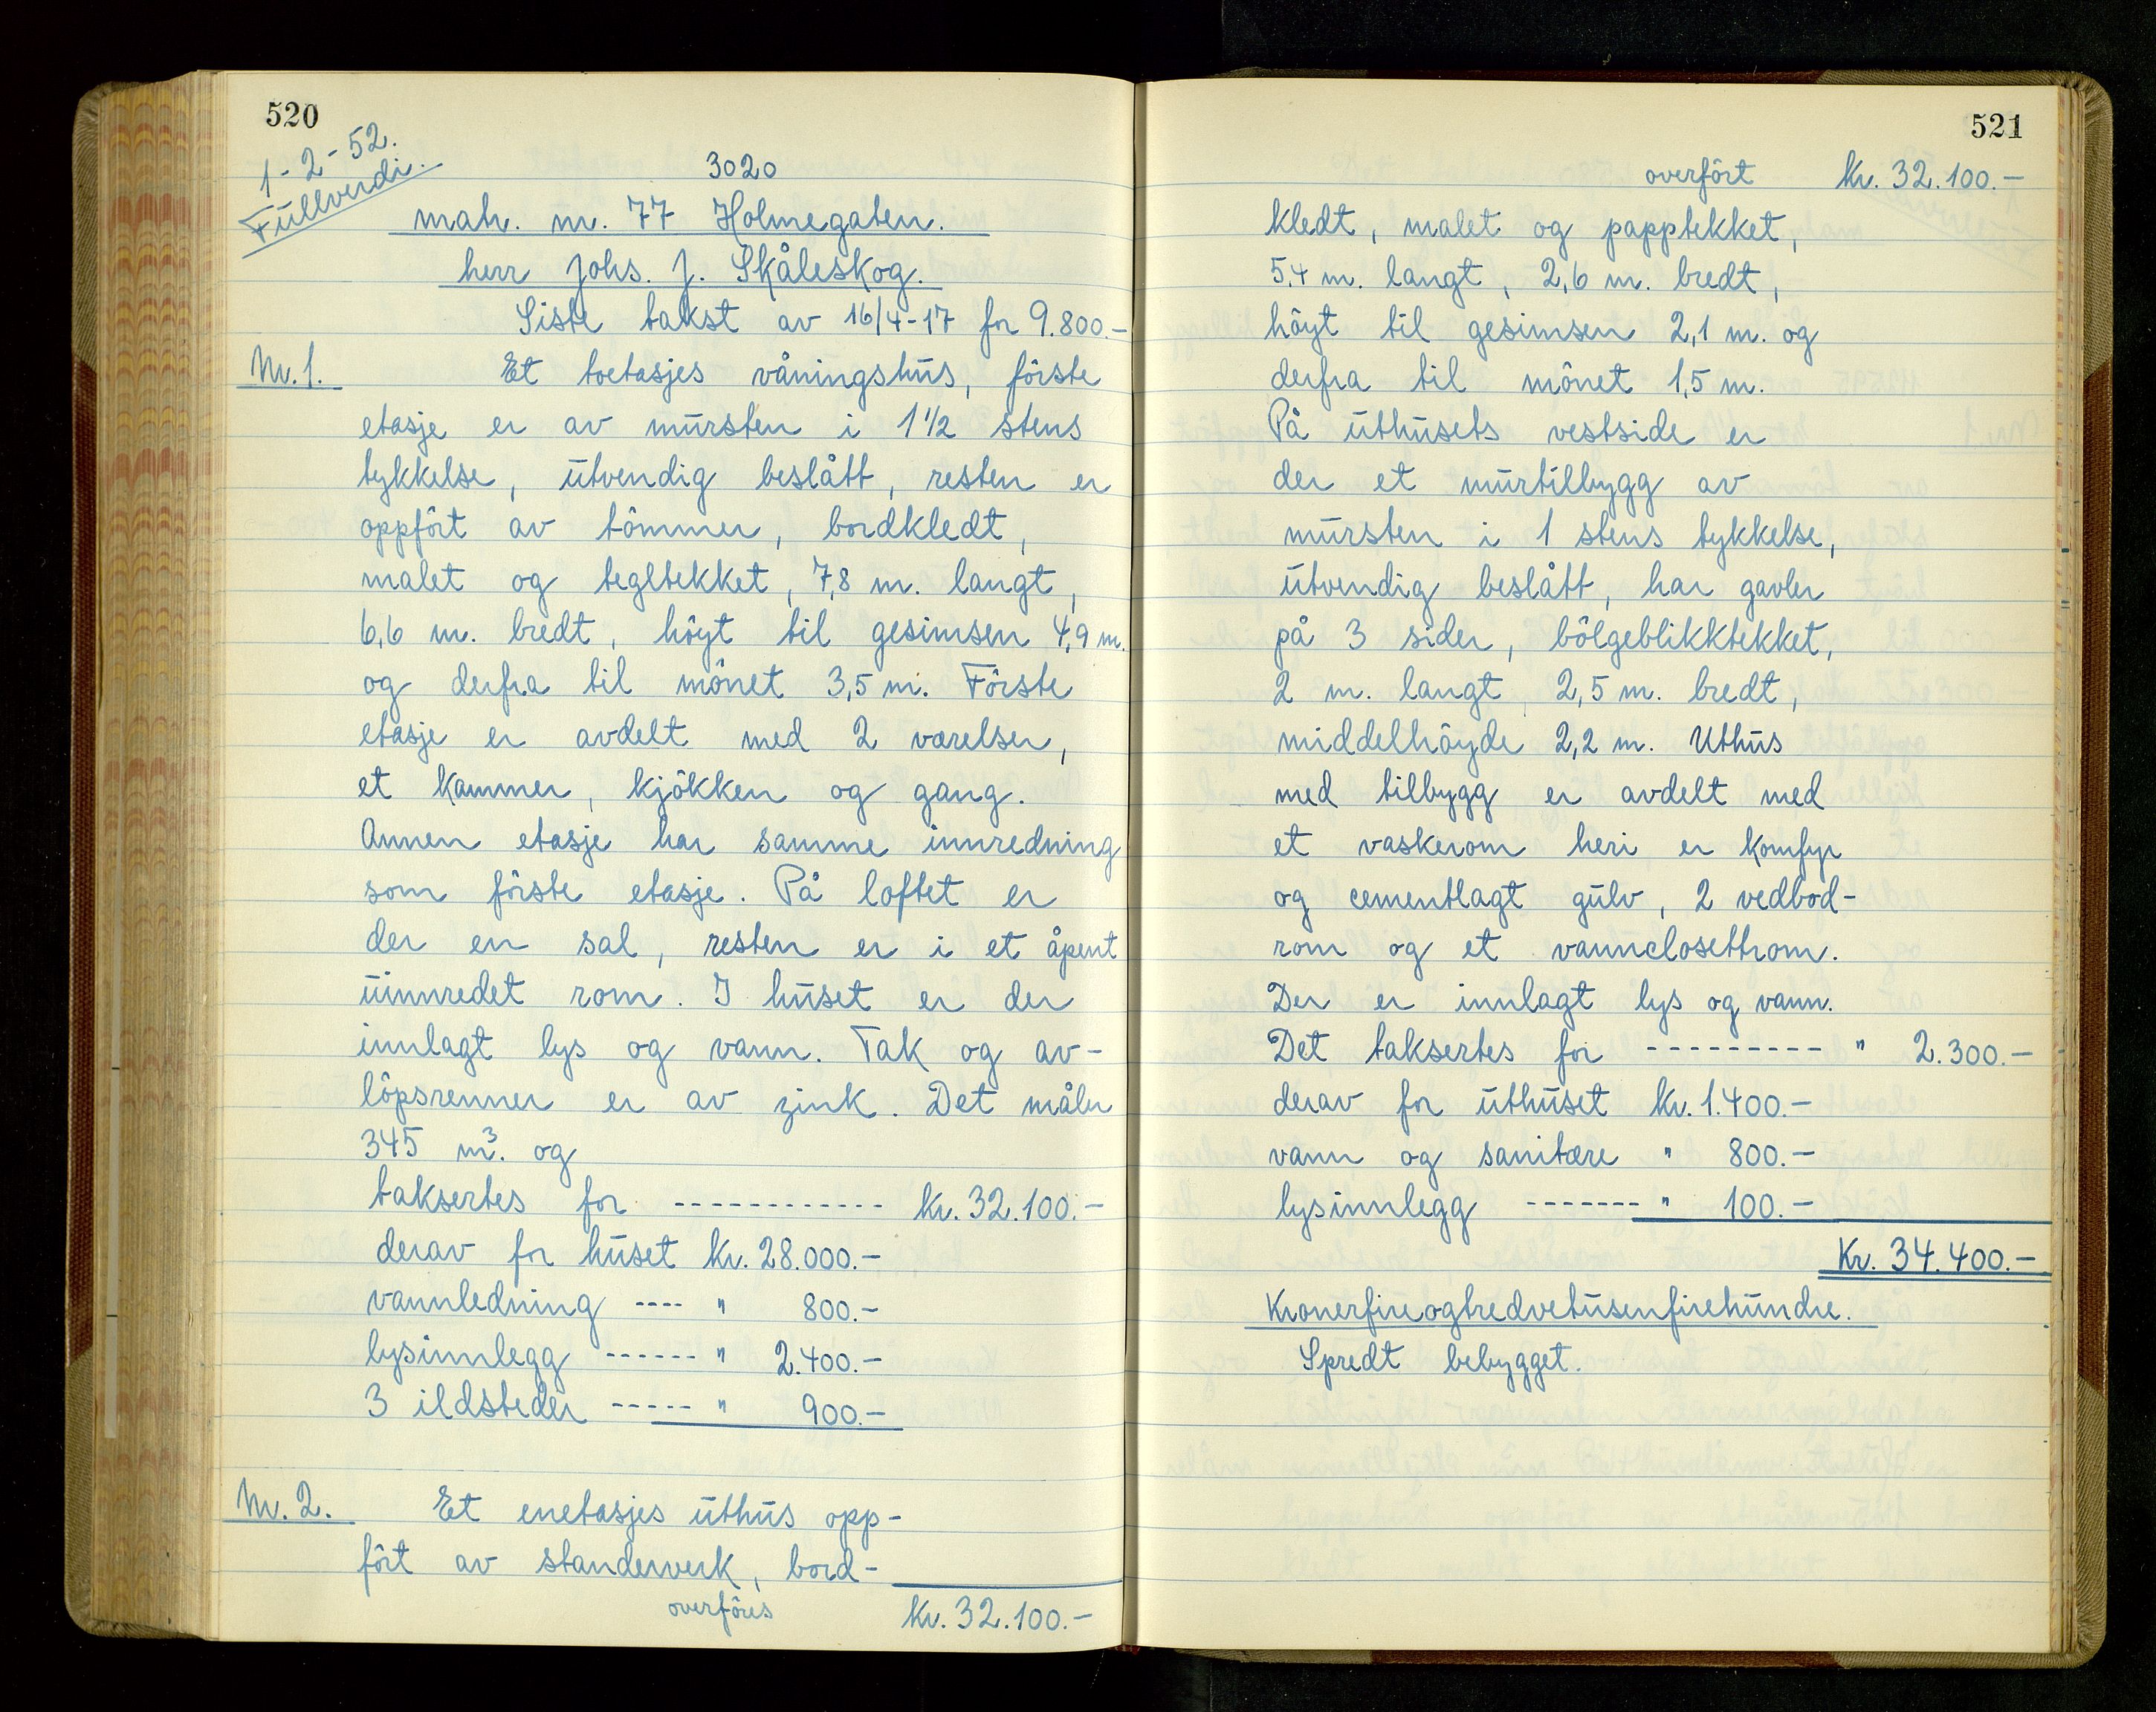 520
1-2-52.
Fullverdi.
3020
matr. nr. 77 Holmegaten.
herr Johs. J. Skåleskog.
Siste takst av 16/4-17 for 9.800.-
Nr. 1. Et toetasjes våningshus, förste
etasje er av mursten i 1 1/2 stens
tykkelse, utvendig beslått, resten er
oppfört av tömmer, bordkledt,
malet og tegltekket, 7,8 m. langt,
6,6 m. bredt, höyt til gesimsen 4,9 m.
og derfra til mönet 3,5 m. Förste
etasje er avdelt med 2 værelser,
et kammer, kjökken og gang.
Annen etasje har samme innredning
som förste etasje. På loftet er
der en sal, resten er i et åpent
uinnredet rom. I huset er der
innlagt lys og vann. Tak og av-
löpsrenner er av zink. Det måler
345 m³. og
taksertes for ------------ kr. 32.100.-
derav for huset kr. 28.000.-
vannledning ---- " 800.-
lysinnlegg ------ " 2.400.-
3 ildsteder ----- " 900.-
Nr. 2. Et enetasjes uthus opp-
fört av standerverk, bord-
overföres kr. 32.100.-
521
overfört kr. 32.100.-
kledt, malet og papptekket,
5,4 m. langt, 2,6 m. bredt,
höyt til gesimsen 2,1 m. og
derfra til mönet 1,5 m.
På uthusets vestside er
der et murtilbygg av
mursten i 1 stens tykkelse,
utvendig beslått, har gavler
på 3 sider, bölgeblikktekket,
2 m. langt, 2,5 m. bredt,
middelhöyde 2,2 m. Uthus
med tilbygg er avdelt med
et vaskerom heri er komfyr
og cementlagt gulv, 2 vedbod-
rom og et vannclosettrom.
Der er innlagt lys og vann.
Det taksertes for --------- " 2.300.-
derav for uthuset kr. 1.400.-
vann og sanitære " 800.-
lysinnlegg ------- " 100.-
Kr. 34.400.-
Kronerfireogtredvetusenfirehundre.
Spredt bebygget.